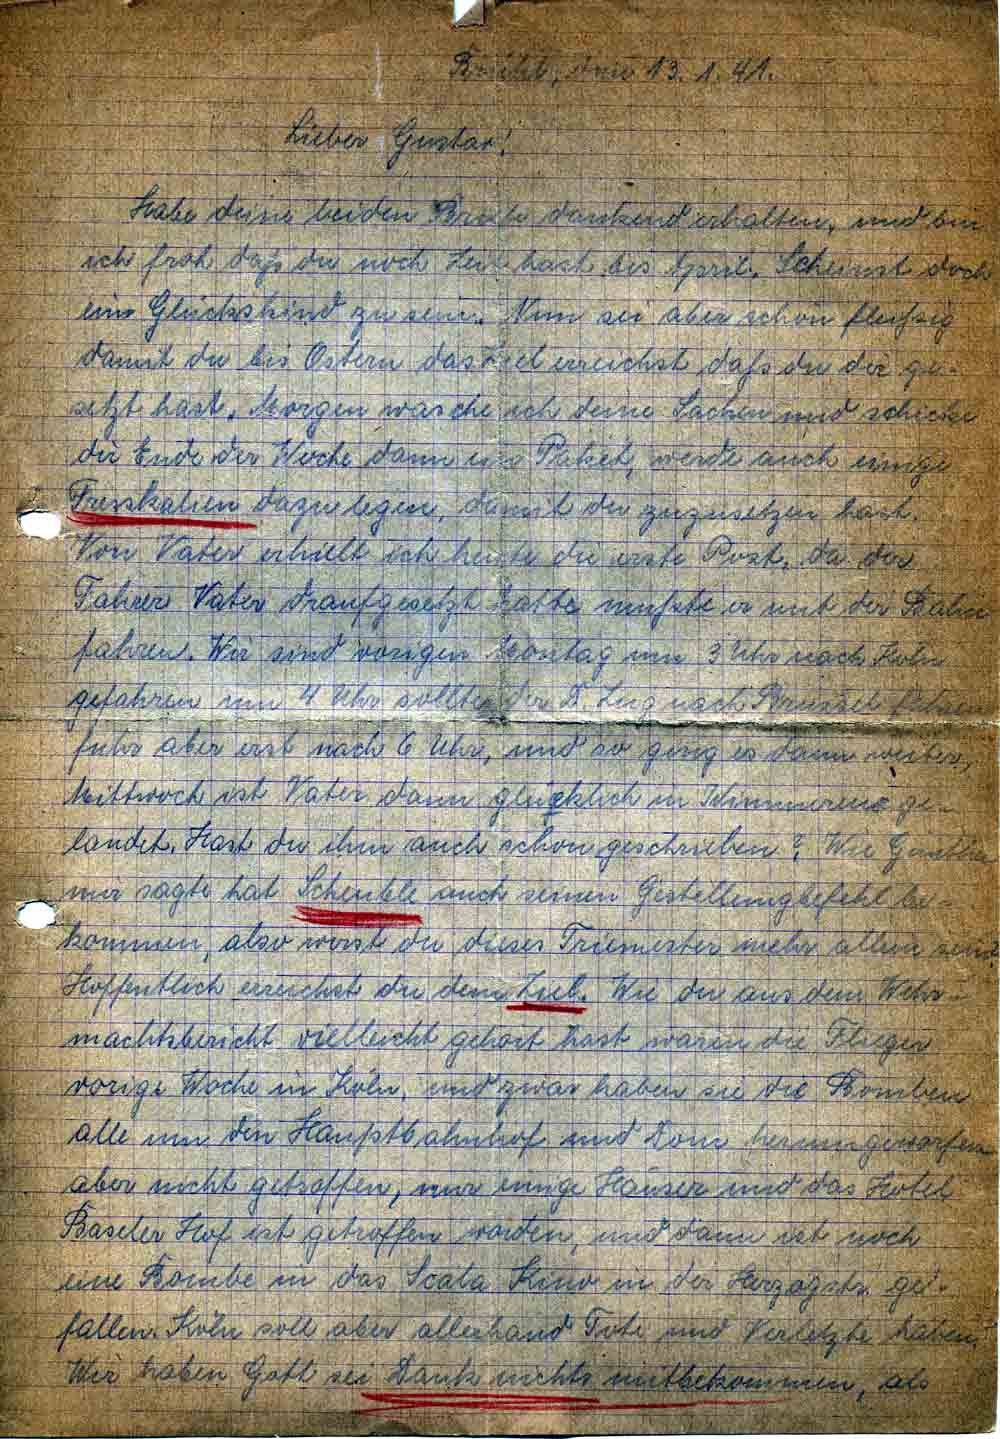 Brühl, den 13.1.41.
Lieber Gustav!
Habe deine beiden Briefe dankend erhalten, und bin
ich froh daß du noch Zeit hast bis April. Scheinst doch
ein Glückskind zu sein. Nun sei aber schön fleißig
damit du bis Ostern das Ziel erreichst daß du dir ge-
setzt hast. Morgen wasche ich deine Sachen und schicke
dir Ende der Woche dann ein Paket, werde auch einige
Fresskalien dazu legen, damit du zuzusetzen hast.
Von Vater erhielt ich heute die erste Post, da der
Fahrer Vater draufgesetzt hatte mußte er mit der Bahn
fahren. Wir sind vorigen Montag um 3 Uhr nach Köln
gefahren um 4 Uhr sollte der D. Zug nach Brüssel fahren
fuhr aber erst nach 6 Uhr, und so ging es dann weiter,
Mittwoch ist Vater dann glücklich in Wimmereux ge-
landet. Hast du ihm auch schon geschrieben? Wie Günther
mir sagte hat Scheuble auch seinen Gestellungbefehl be-
kommen, also wirst du dieses Triemester mehr allein sein
Hoffentlich erreichst du dein Ziel. Wie du aus dem Wehr-
machtsbericht vielleicht gehört hast waren die Flieger
vorige Woche in Köln, und zwar haben sie die Bomben
alle um den Hauptbahnhof und Dom herumgeworfen
aber nicht getroffen, nur einige Häuser und das Hotel
Baseler Hof ist getroffen worden, und dann ist noch
eine Bombe in das Scala Kino in der Herzogstr. ge-
fallen. Köln soll aber allerhand Tote und Verletzte haben.
Wir haben Gott sei Dank nichts mitbekommen, als